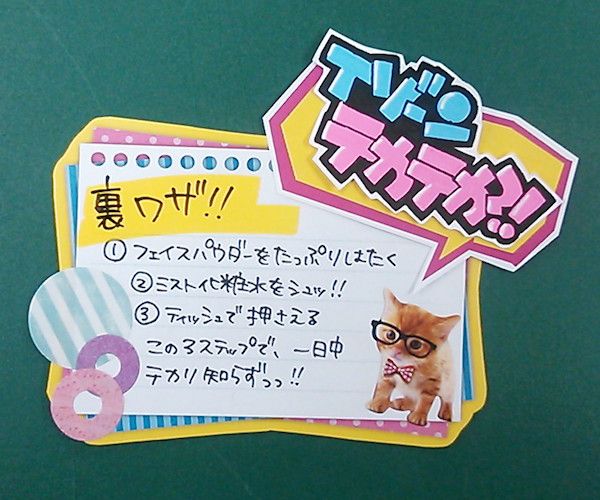 Tゾーン
テカテカ?!
裏ワザ!!
①フェイスパウダーをたっぷりはたく
②ミスト化粧水をシュッ!!
③ティッシュで押さえる
この3ステップで、一日中
テカリ知らずっっ!!